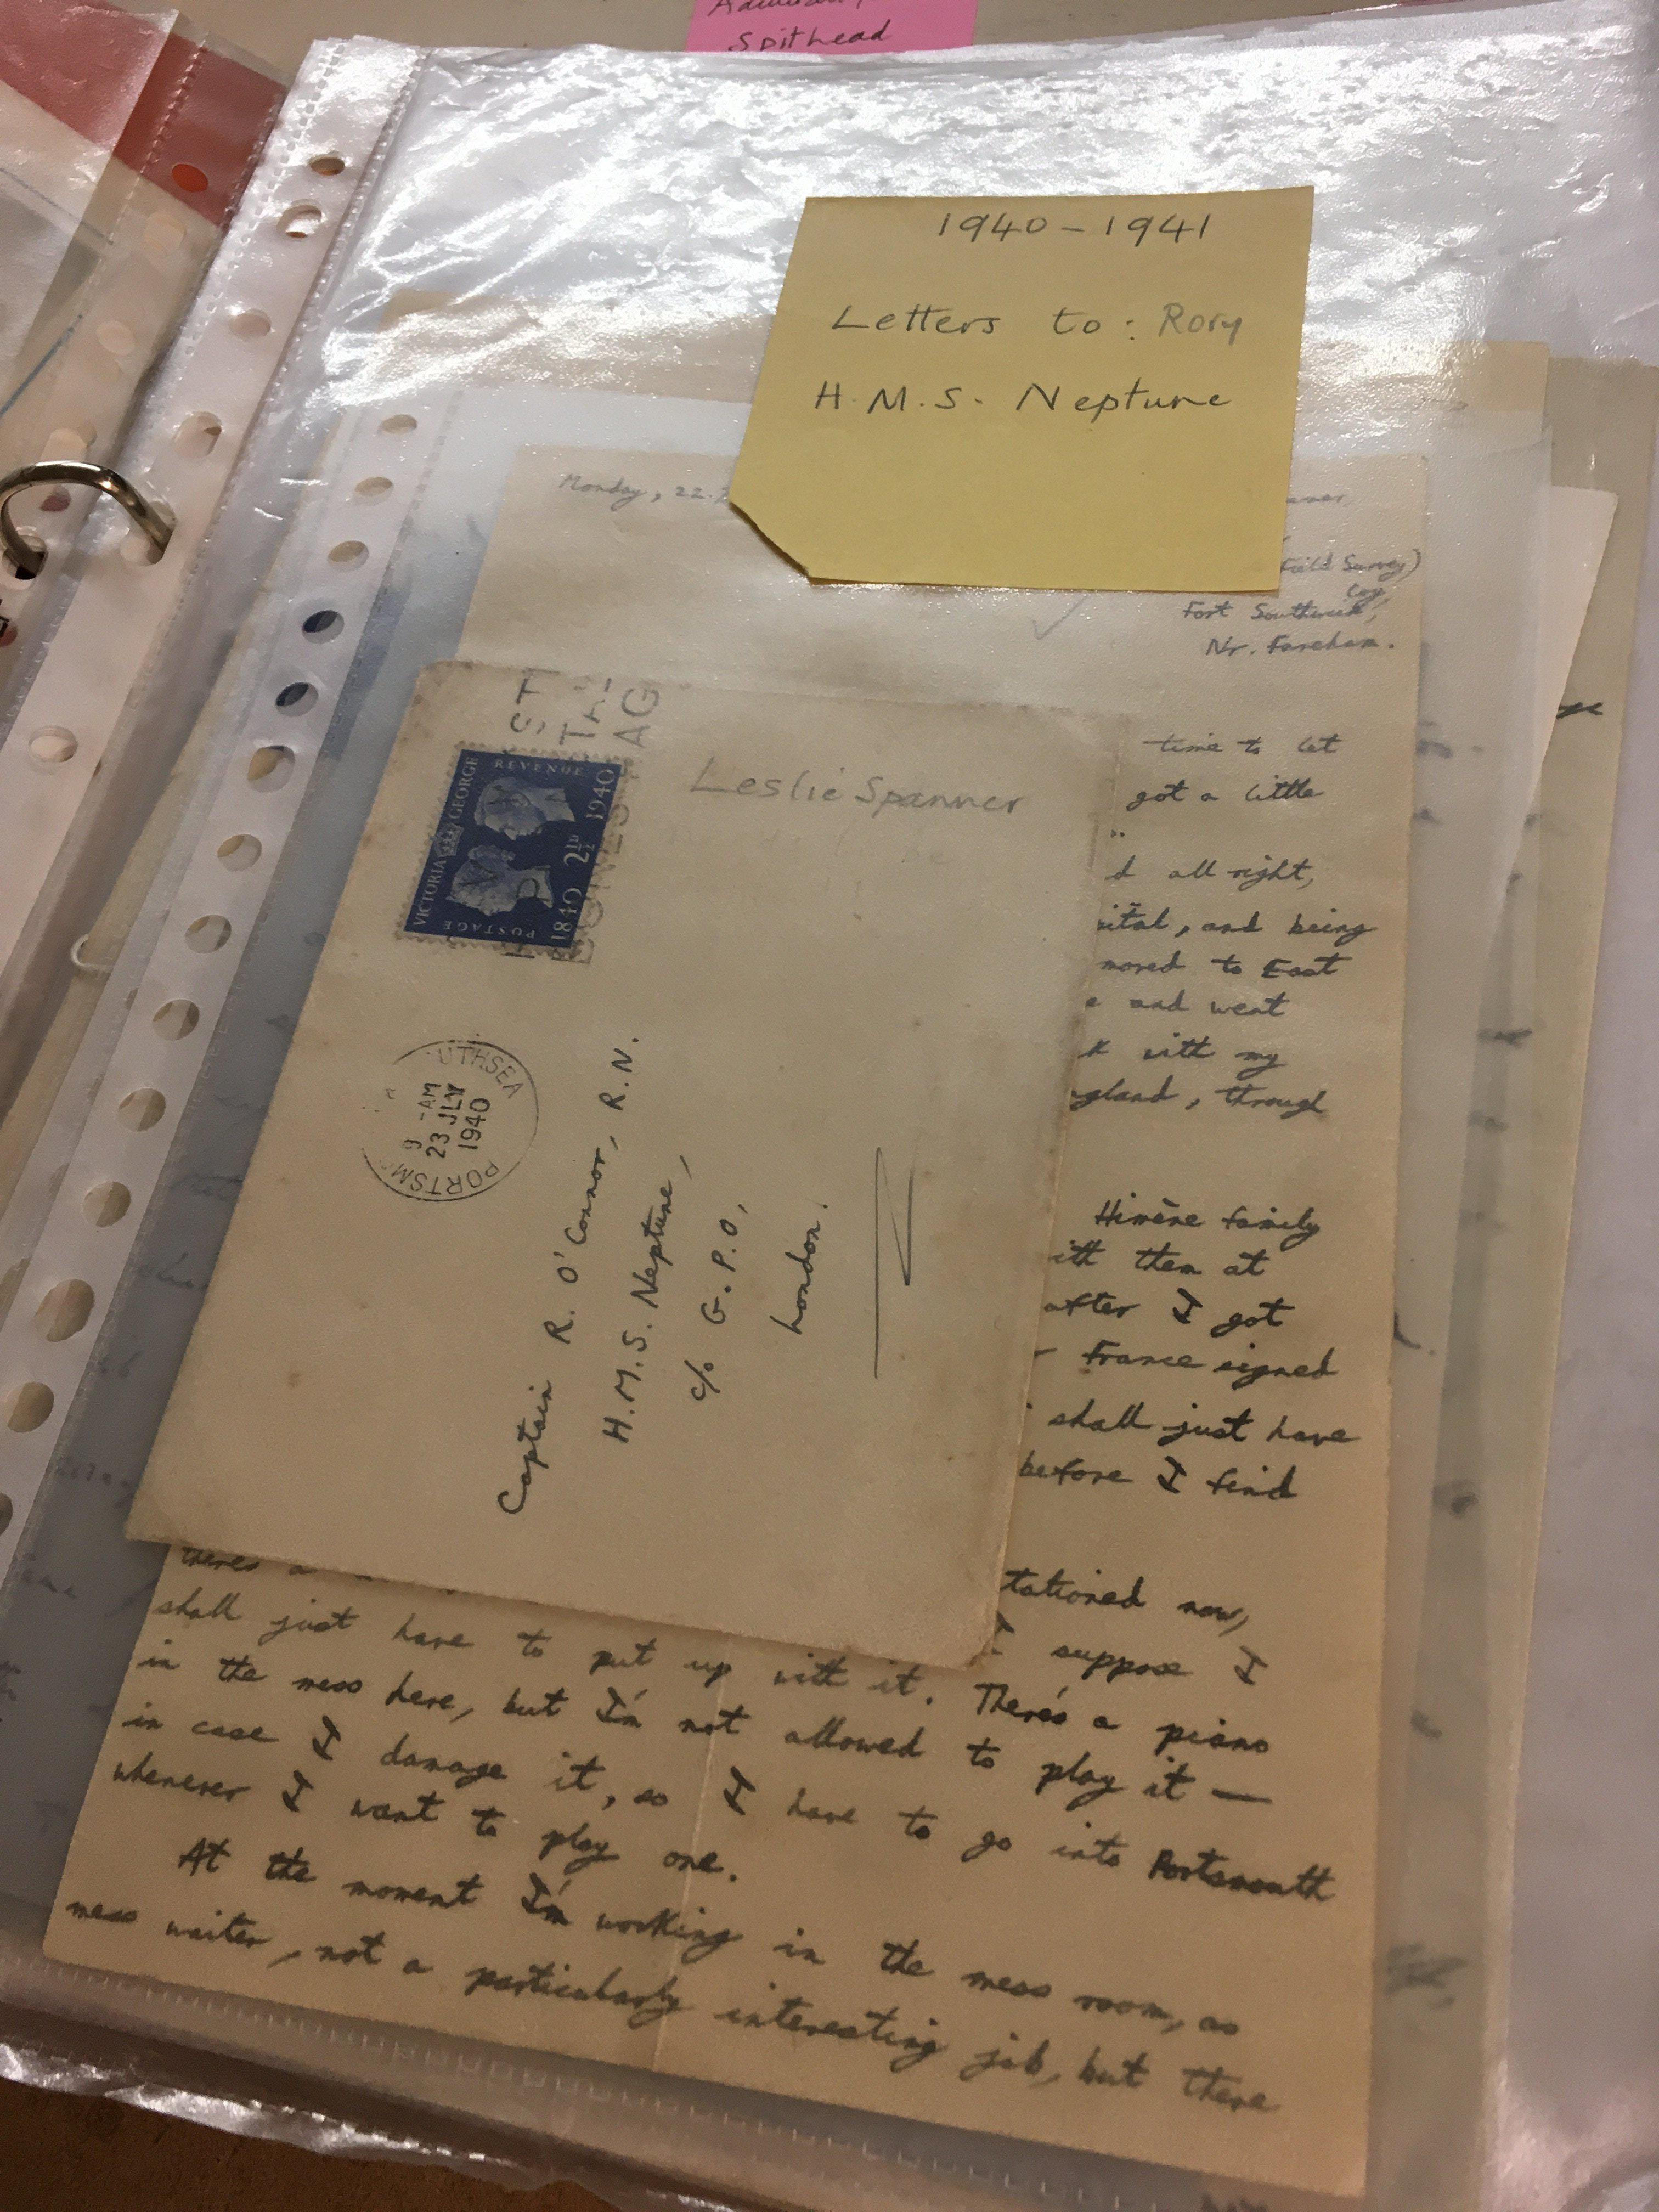 Spithead
1940-1941
Letters to: Rory
H.M.S. Neptune
Monday, 22.
Field Survey)
Coy,
Fort Southwick,
Nr. Fareham.
ST
TA
AG
VICTORIA GEORGE
REVENUE
POSTAGE
1840 2½d 1940
Leslie Spanner
UTHSEA
9 -AM
23 JLY
1940
PORTSM
Captain R. O'Connor, R.N.
H.M.S. Neptune,
c/o G.P.O,
London.
time to let
got a little
all right,
pital, and being
moved to East
and went
with my
ngland, through
Himène family
ith them at
after I got
France signed
shall just have
before I find
there's a
tationed now,
I suppose I
shall just have to put up with it. There's a piano
in the mess here, but I'm not allowed to play it —
in case I damage it, so I have to go into Portsmouth
whenever I want to play one.
At the moment I'm working in the mess room, as
mess waiter, not a particularly interesting job, but there